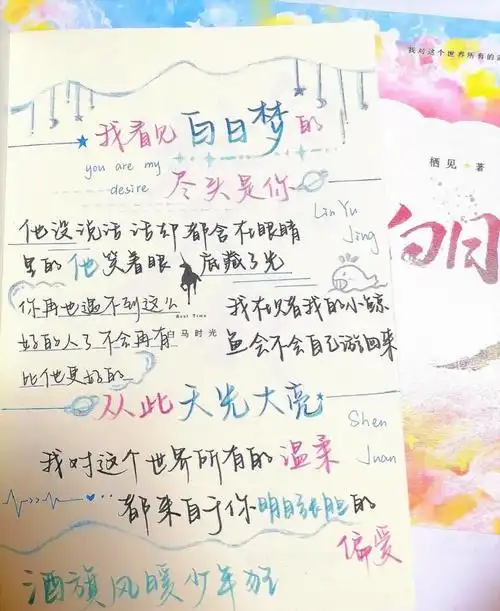 我看见白日梦的
you are my
desire
尽头是你
Lin Yu
Jing
他没说话 话却都含在眼睛
里的 他笑着眼底藏了光
你再也遇不到这么
好的人了 不会再有
比他更好的
Best Time
白马时光
我在只看我的小鲸
鱼会不会自己游回来
从此天光大亮
Shen
Juan
我对这个世界所有的温柔
都来自于你明目张胆的
偏爱
酒旗风暖少年狂
我对这个世界所有的温
栖见 著
白日